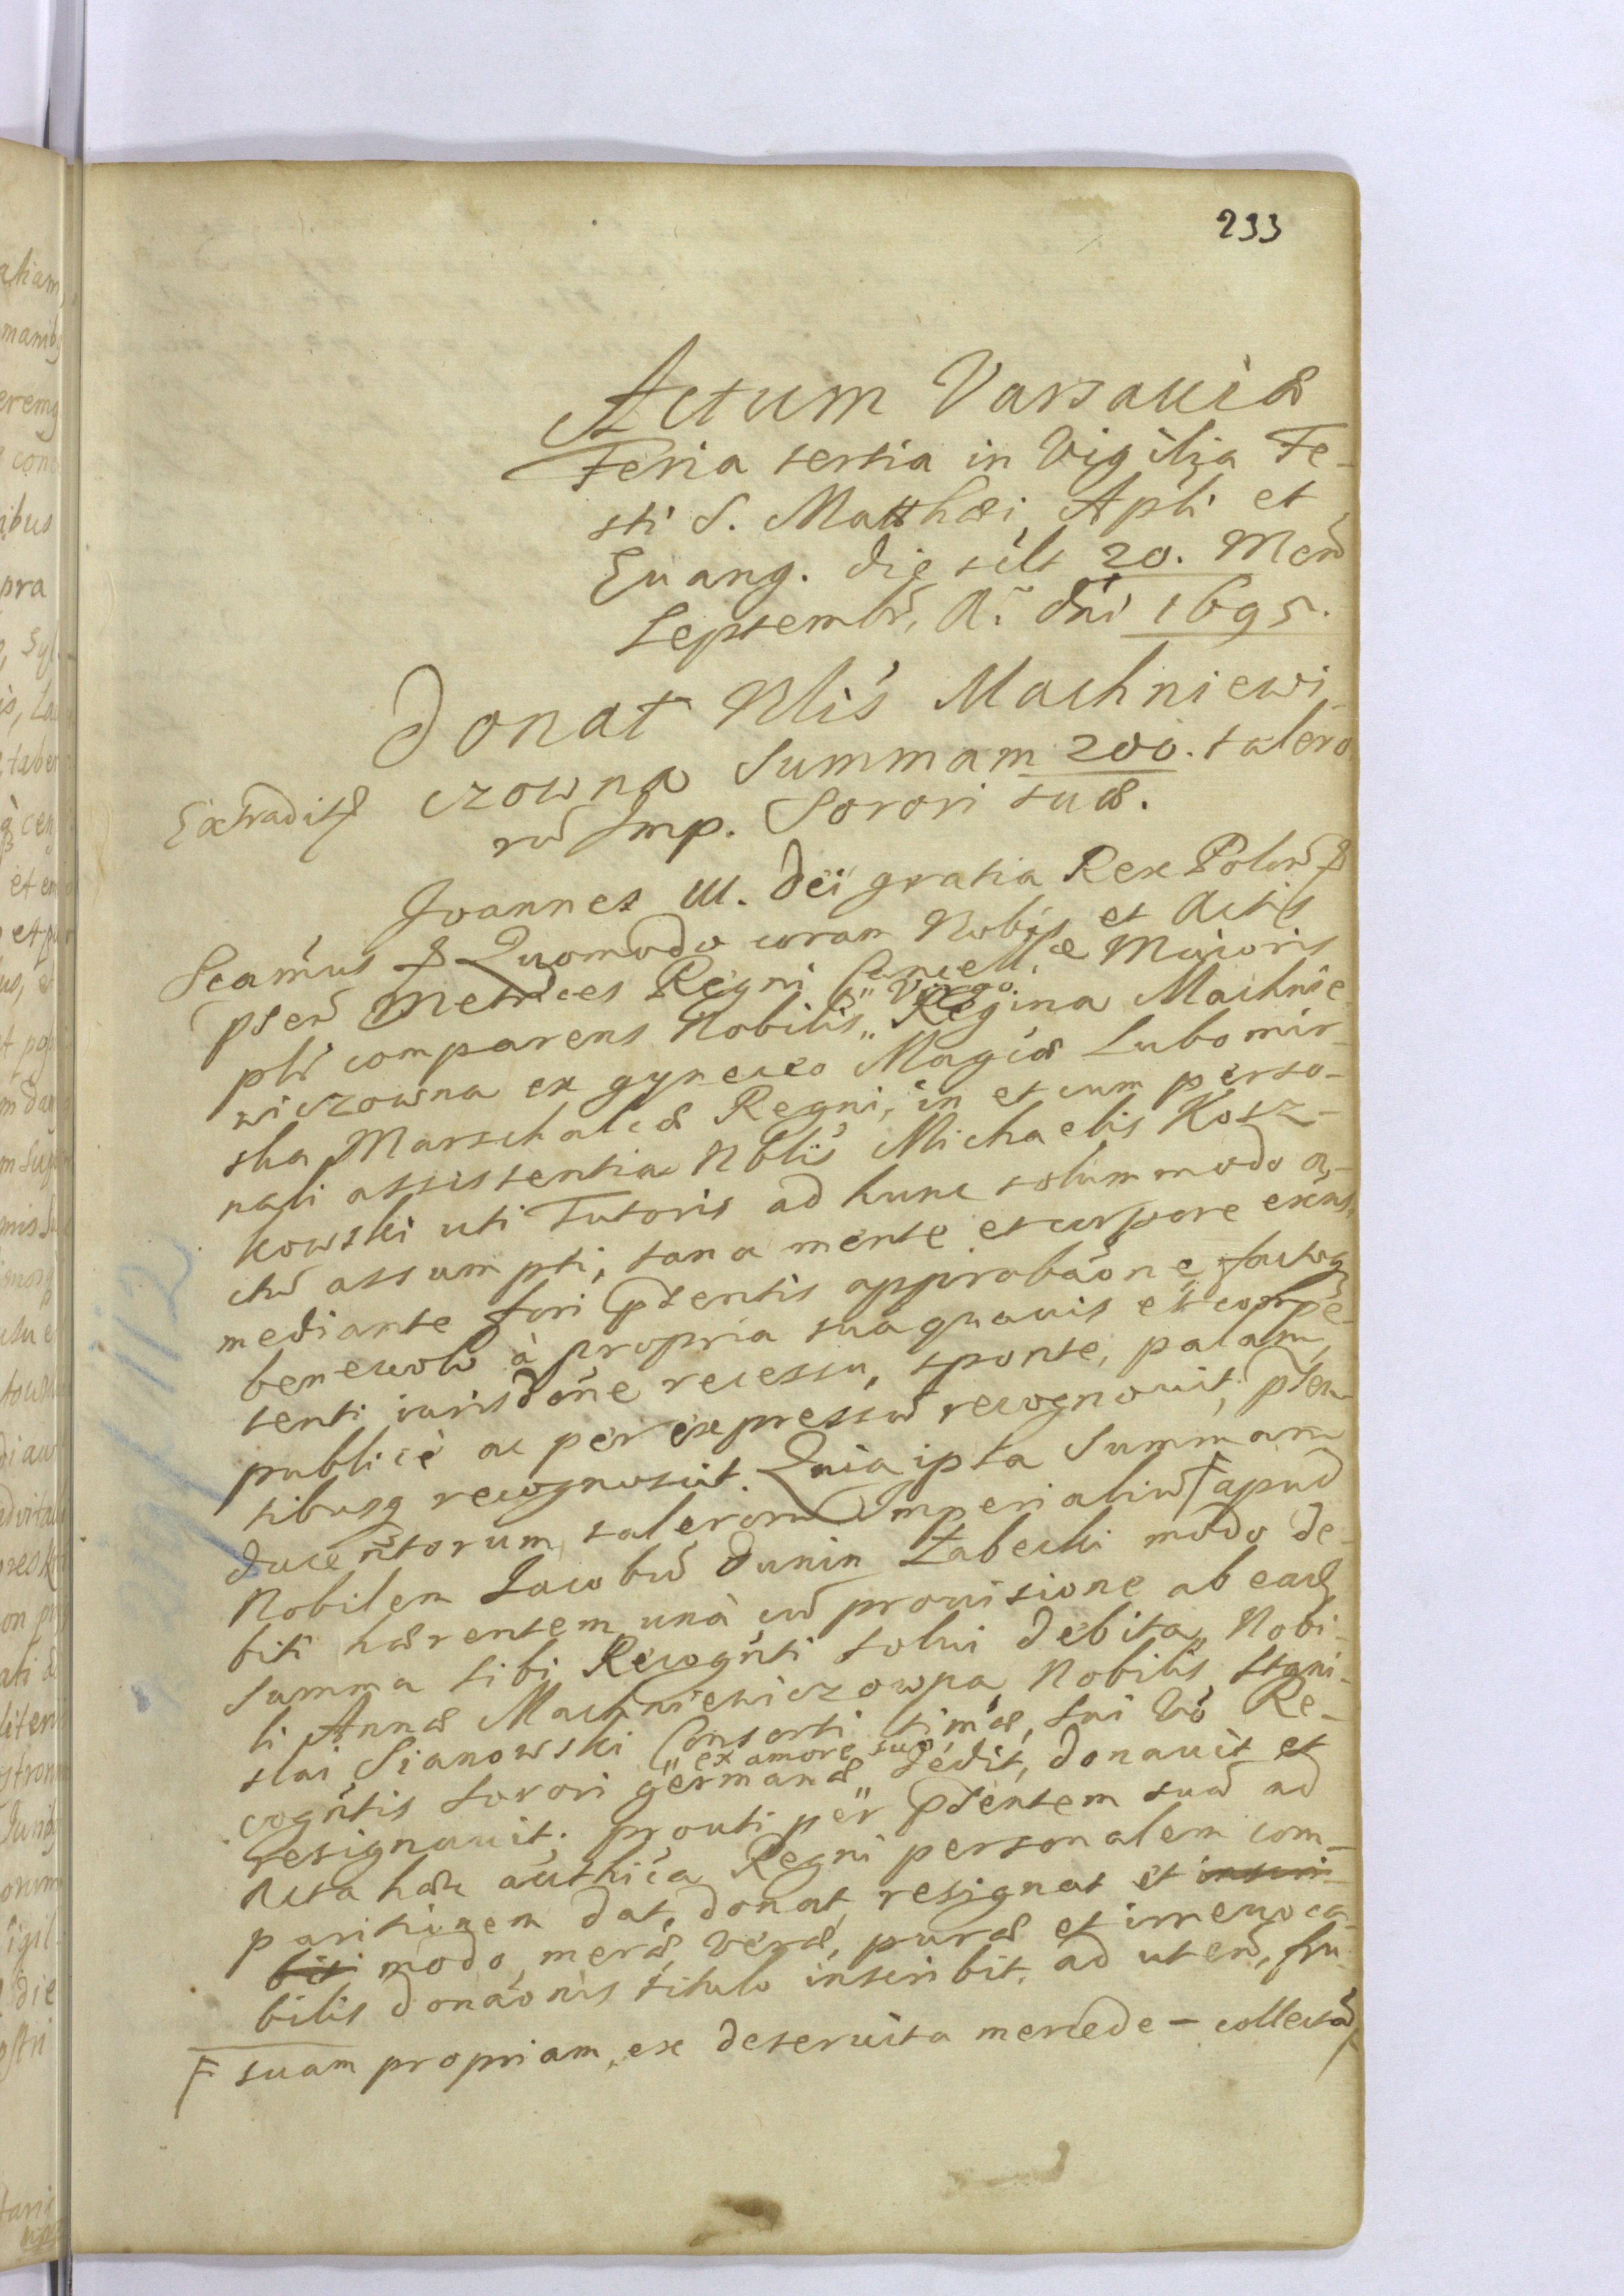 233
Actum Varsauiæ
Feria tertia in Vigilia Fe-
sti S. Matthæi Apli et
Euang. die silt 20. Men̄
Septembr̄, A. dn̄i 1695.
Donat Nlis Machniewi-
czowna Summam 200. talero
Extradit rū Imp. Sorori suæ.
Joannes III. Dei gratia Rex Polon̄
Scamus Quomodo coram Nobis et Actis
pn̄ Metrices Regni Cancell. Maioris
plr̄ comparens Nobilis " Virgo " Regina Machnie-
wiczowna ex gyneceo Magcæ Lubomir-
ska Marschalcæ Regni, in et cum perso-
nali assistentia Nblis Michaelis Kosz-
kowski uti Tutoris ad hunc solummodo a-
ctū assumpti, sana mente et corpore exens,
mediante fori pn̄tis approbãone factoq
beneuolo à propria suaquauis et compe-
tenti iurisdōne recessu, sponte, palam,
publicè ac per expressū recognouit, pn̄
tibusq recognoscit. Quia ipsa Summam
ducentorum talerorū Imperialiū F apud
Nobilem Jacobū Dunin Łabęcki modo de-
biti hærentem unà cū prouisione ab eadē
summa sibi Recognti solui debita, Nobi-
li Annæ Machniewiczowna Nobilis Stani-
slai Sianowski Consorti ltimæ, sui vo Re-
cogntis sorori germanæ " ex amore suo " dedit, donauit et
resignauit. prouti per pn̄tem suā ad
Acta hæc authca Regni personalem com-
paritionem dat, donat, resignat et inscri-
bit modo, meræ, veræ, puræ et irreuoca-
bilis donãonis titulo inscribit. ad utend, fru
F suam propriam, ex deseruita mercede - collectā